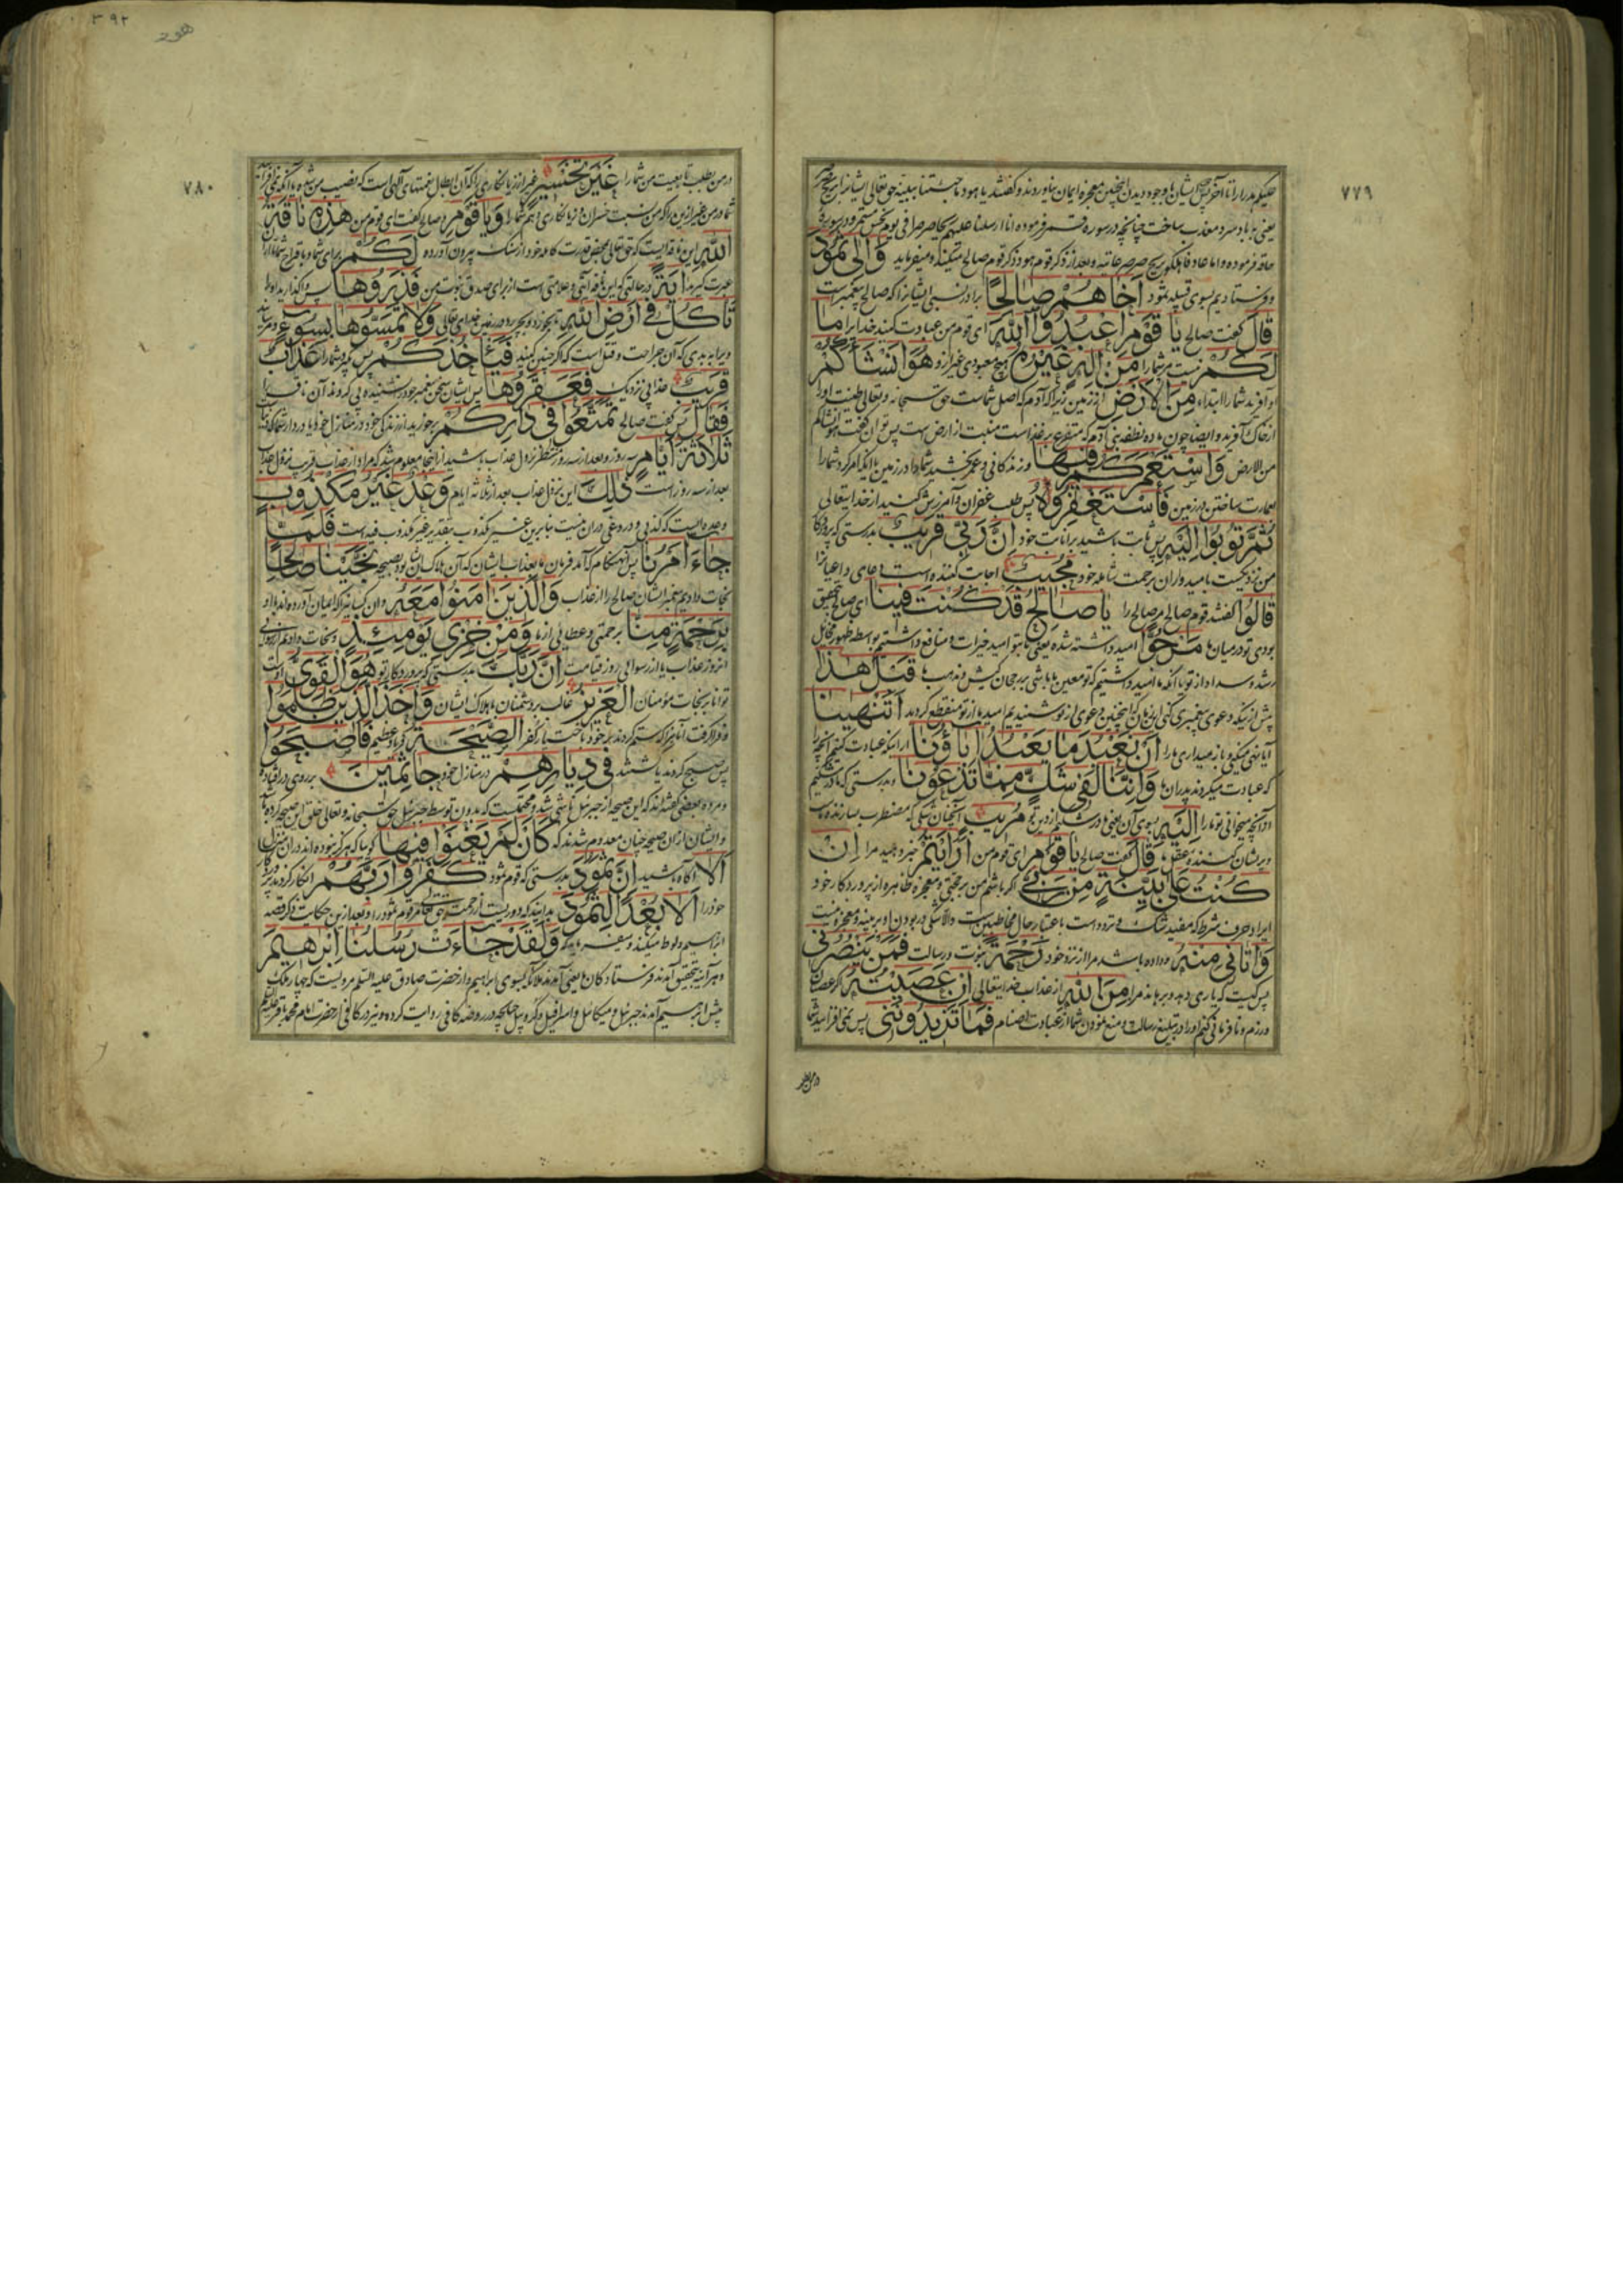 ۷۷۹
یعنی بباد سرد معذب ساخت چنانچه در سوره قمر فرموده انا ارسلنا علیهم ریحا صرصرا فی یوم نحس مستمر و در سوره
حاقه فرموده و اما عاد فاهلکوا بریح صرصر عاتیه و بعد از ذکر قوم هود ذکر قوم صالح میکند و میفرماید وَاِلٰی ثَمُودَ
و فرستادیم بسوی قبیله ثمود اَخَاهُمْ صَالِحًا برادر نسبی ایشانرا که صالح پیغمبر است
قَالَ گفت صالح یَا قَوْمِ اعْبُدُوا اللّٰهَ ای قوم من عبادت کنید خدایرا مَا
لَکُمْ نیست مر شما را مِنْ اِلٰهٍ غَیْرُهُ هیچ معبودی غیر ازو هُوَ اَنْشَاَکُمْ
او آفرید شما را ابتداء مِنَ الْاَرْضِ از زمین زیرا که آدم که اصل شماست حق سبحانه و تعالی طینت او را
از خاک آفرید
من الارض وَاسْتَعْمَرَکُمْ فِیهَا و زندگانی و عمر بخشید شما را در زمین یا آنکه امر کرد شما را
بعمارت ساختن در زمین فَاسْتَغْفِرُوهُ پس طلب غفران و آمرزش کنید از خدایتعالی
ثُمَّ تُوبُوا اِلَیْهِ پس ثابت باشید بر انابت خود اِنَّ رَبِّی قَرِیبٌ بدرستی که پروردگار
من نزدیکست بامیدواران برحمت شامله خود مُجِیبٌ اجابت کننده است دعای داعیانرا
قَالُوا گفتند قوم صالح مر صالح را یَا صَالِحُ قَدْ کُنْتَ فِینَا ای صالح بتحقیق
بودی تو در میان ما مَرْجُوًّا امید داشته شده یعنی ما بتو امید خیرات و منافع داشتیم بواسطه ظهور مخایل
رشد و سداد از تو یا آنکه ما امید داشتیم که تو معین ما باشی بر رجحان کیش و مذهب ما قَبْلَ هٰذَا
پیش از اینکه دعوی پیغمبری کنی این زمان که اینچنین دعوی از تو شنیدیم امید ما از تو منقطع گردید اَتَنْهٰینَا
آیا نهی میکنی و باز میداری ما را اَنْ نَعْبُدَ مَا یَعْبُدُ اٰبَاؤُنَا از اینکه عبادت کنیم آنچه را
که عبادت میکردند پدران ما وَاِنَّنَا لَفِی شَکٍّ مِمَّا تَدْعُونَا و بدرستی که ما در شکیم
از آنچه میخوانی تو ما را اِلَیْهِ بسوی آن یعنی در شکیم از دین تو مُرِیبٍ آنچنان شکی که مضطرب سازنده
و پریشان کننده عقل قَالَ گفت صالح یَا قَوْمِ ای قوم من اَرَاَیْتُمْ خبر دهید مرا اِنْ
کُنْتُ عَلٰی بَیِّنَةٍ مِنْ رَبِّی اگر باشم من بر حجتی و معجزه ظاهره از پروردگار خود
ایراد حرف شرط که مفید شک و تردد است باعتبار حال مخاطبین است والا شکی در بودن او بر بینه و معجزه نیست
وَاٰتَانِی مِنْهُ و داده باشد مرا از نزد خود رَحْمَةً نبوت و رسالت فَمَنْ یَنْصُرُنِی
پس کیست که یاری دهد و برهاند مرا مِنَ اللّٰهِ از عذاب خدایتعالی اِنْ عَصَیْتُهُ اگر عصیان
ورزم و نافرمانی کنم او را در تبلیغ رسالت و منع نمودن شما از عبادت اصنام فَمَا تَزِیدُونَنِی پس نمی افزایید شما
۳۹۲
۷۸۰
در من بطلب تابعیت من شما را غَیْرَ تَخْسِیرٍ غیر از زیانکاری
وَیَا قَوْمِ و صالح گفت ای قوم من هٰذِهِ نَاقَةُ
اللّٰهِ این ناقه ایست که حق تعالی بمحض قدرت کامله خود از سنک بیرون آورده لَکُمْ برای شما
اٰیَةً در حالتی که این ناقه آیتی و علامتی است از برای صدق نبوت من فَذَرُوهَا پس واگذارید او را
تَاْکُلْ فِی اَرْضِ اللّٰهِ تا بخورد و بچرد در زمین خدای تعالی وَلَا تَمَسُّوهَا بِسُوءٍ و مرسانید
ویرا به بدی که آن جراحت و قتل است که اگر چنین کنید فَیَاْخُذَکُمْ پس بگیرد شما را عَذَابٌ
قَرِیبٌ عذابی نزدیک فَعَقَرُوهَا پس ایشان سخن پیغمبر خود را نشنیده پی کردند آن ناقه را
فَقَالَ پس گفت صالح تَمَتَّعُوا فِی دَارِکُمْ برخوردارید از زندگی خود در منازل خود
ثَلٰثَةَ اَیَّامٍ سه روز و بعد از سه روز منتظر نزول عذاب باشید از اینجا معلوم شد که مراد از عذاب قریب نزول عذاب
بعد از سه روز است ذٰلِکَ این نزول عذاب بعد از ثلاثه ایام وَعْدٌ غَیْرُ مَکْذُوبٍ
وعده ایست که کذبی و دروغی در آن نیست بنابرین غیر مکذوب بتقدیر غیر مکذوب فیه است فَلَمَّا
جَاءَ اَمْرُنَا پس آنهنگام که آمد فرمان ما بعذاب ایشان که آن هلاک ایشان بود بصیحه نَجَّیْنَا صَالِحًا
نجات دادیم پیغمبر ایشان صالح را از عذاب وَالَّذِینَ اٰمَنُوا مَعَهُ و آن کسانیرا که ایمان آورده اند با او
بِرَحْمَةٍ مِنَّا برحمتی و عطایی از ما وَمِنْ خِزْیِ یَوْمِئِذٍ و نجات دادیم از رسوایی
آنروز عذاب یا از رسوایی روز قیامت اِنَّ رَبَّکَ بدرستی که پروردگار تو هُوَ الْقَوِیُّ اوست
توانا بر نجات مؤمنان الْعَزِیزُ غالب بر دشمنان بهلاک ایشان وَاَخَذَ الَّذِینَ ظَلَمُوا
و فرا گرفت آنانرا که ستم کردند بر خود الصَّیْحَةُ فریاد عظیم فَاَصْبَحُوا
پس صبح کردند یا گشتند فِی دِیَارِهِمْ در منازل خود جَاثِمِینَ بر روی در افتاده
و مرده بعضی گفته‌اند که این صیحه از جبرئیل ناشی شد و محتملست که بدون توسط جبرئیل حق سبحانه و تعالی خلق این صیحه کرده باشد
و ایشان از آن صیحه چنان معدوم شدند که کَاَنْ لَمْ یَغْنَوْا فِیهَا گویا که هرگز نبوده اند در آن منزل
اَلَا آگاه باشید اِنَّ ثَمُودَ بدرستی که قوم ثمود کَفَرُوا رَبَّهُمْ انکار کردند پروردگار
خود را اَلَا بُعْدًا لِثَمُودَ بدانید که دوریست از رحمت حق تعالی مر قوم ثمود را و بعد از این حکایت ذکر قصه
ابراهیم و لوط میکند و میفرماید که وَلَقَدْ جَاءَتْ رُسُلُنَا اِبْرٰهِیمَ
و هر آینه بتحقیق آمدند فرستادگان ما یعنی ملائکه بسوی ابراهیم و از حضرت صادق علیه السلم مرویست که چهار ملک
پیش ابراهیم آمدند جبرئیل و میکائیل و اسرافیل و کروبیل چنانچه در روضه کافی روایت کرده و نیز در کافی از حضرت امام محمد باقر علیه السلم